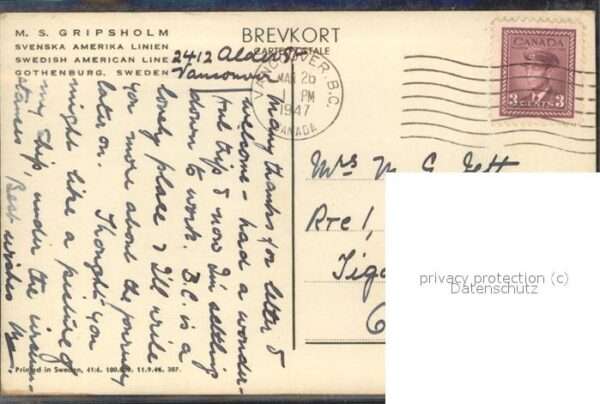 M. S. GRIPSHOLM
SVENSKA AMERIKA LINIEN
SWEDISH AMERICAN LINE
GOTHENBURG, SWEDEN
BREVKORT
CARTE POSTALE
2412 Alder St
Vancouver
VANCOUVER, B.C.
MAR 26
1 PM
1947
CANADA
CANADA
3 CENTS 3
Many thanks for letter &
welcome - had a wonder-
ful trip & now I'm settling
down to work. B.C. is a
lovely place & I'll write
you more about the journey
later on. Thought you
might like a picture of
my ship, under the circum-
stances
Best wishes
Mrs M. G. Jett
Rte 1,
Tiga
O
privacy protection (c)
Datenschutz
Printed in Sweden, 11.9.46. 387.